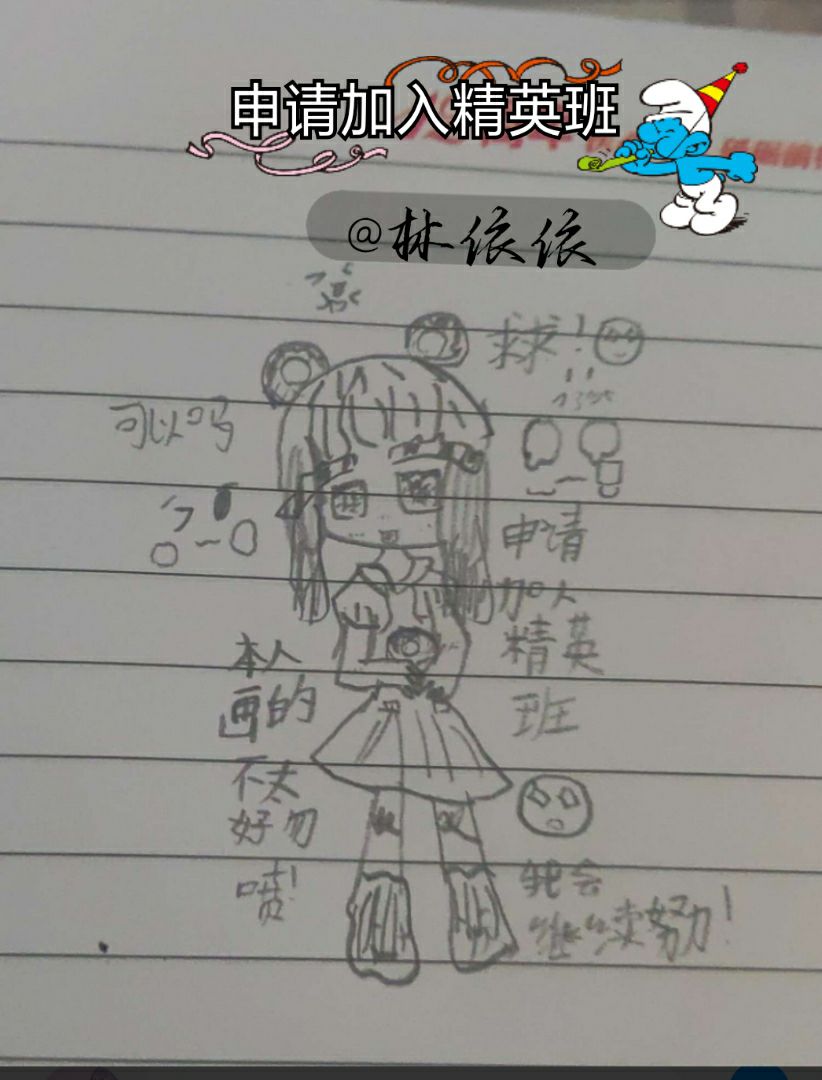 申请加入精英班
@林依依
求求！
可以吗
申请
加入
精英
班
本人
画的
不太
好勿
喷！
我会
继续努力！